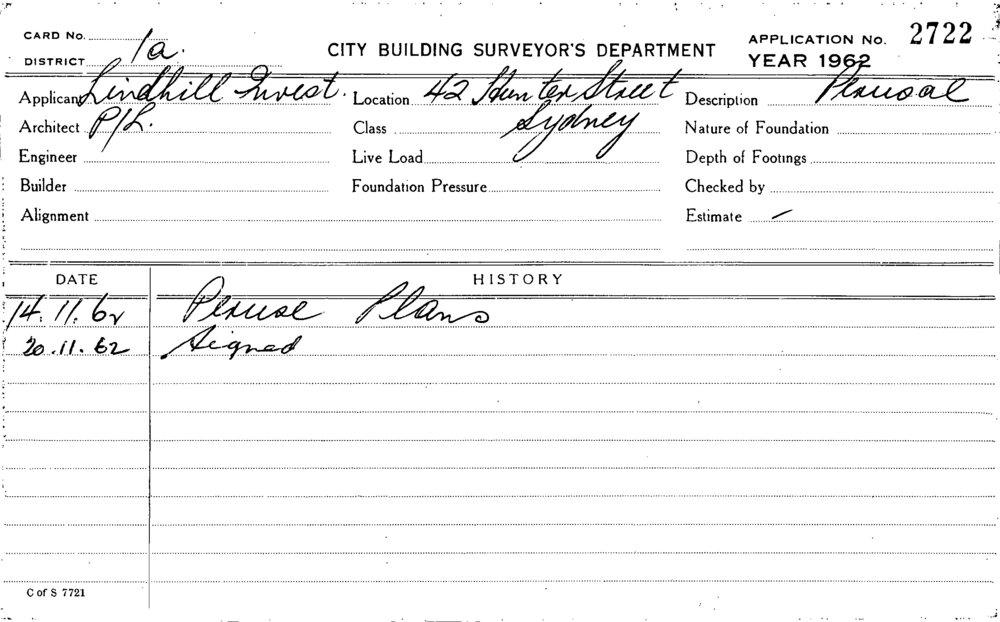 CARD No.
DISTRICT 1a.
CITY BUILDING SURVEYOR'S DEPARTMENT
APPLICATION No. 2722
YEAR 1962
Applicant Lindhill Invest. Location 42 Hunter Street Description Perusal
Architect P/L. Class Sydney Nature of Foundation
Engineer Live Load Depth of Footings
Builder Foundation Pressure Checked by
Alignment Estimate —
DATE HISTORY
14.11.62 Peruse Plans
20.11.62 Signed
C of S 7721